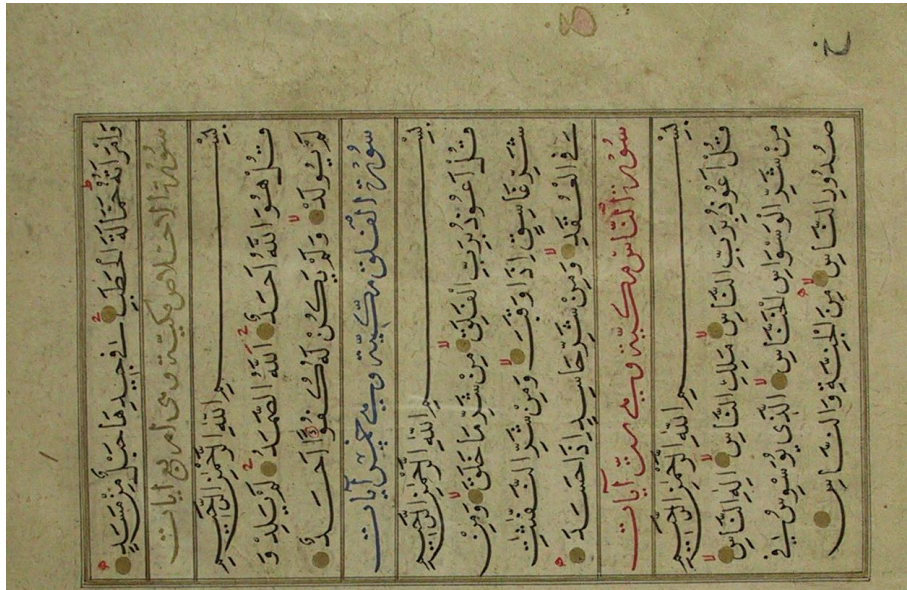 وَامْرَأَتُهُ حَمَّالَةَ الْحَطَبِ فِي جِيدِهَا حَبْلٌ مِنْ مَسَدٍ
سورة الاخلاص مكية وهى اربع ايات
بِسْمِ اللَّهِ الرَّحْمٰنِ الرَّحِيمِ
قُلْ هُوَ اللَّهُ أَحَدٌ اللَّهُ الصَّمَدُ لَمْ يَلِدْ وَ
لَمْ يُولَدْ وَلَمْ يَكُنْ لَهُ كُفُوًا أَحَدٌ
سورة الفلق مكّيّة وهي خمس آيات
بِسْمِ اللَّهِ الرَّحْمٰنِ الرَّحِيمِ
قُلْ أَعُوذُ بِرَبِّ الْفَلَقِ مِنْ شَرِّ مَا خَلَقَ وَمِنْ
شَرِّ غَاسِقٍ إِذَا وَقَبَ وَمِنْ شَرِّ النَّفّٰثٰتِ
فِي الْعُقَدِ وَمِنْ شَرِّ حَاسِدٍ إِذَا حَسَدَ
سورة النّاس مكيّة وهي ستّ آيات
بِسْمِ اللَّهِ الرَّحْمٰنِ الرَّحِيمِ
قُلْ أَعُوذُ بِرَبِّ النَّاسِ مَلِكِ النَّاسِ إِلٰهِ النَّاسِ
مِنْ شَرِّ الْوَسْوَاسِ الْخَنَّاسِ الَّذِي يُوَسْوِسُ فِي
صُدُورِ النَّاسِ مِنَ الْجِنَّةِ وَالنَّاسِ